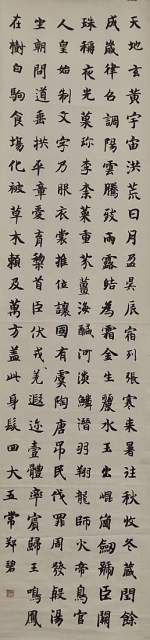 天地玄黄宇宙洪荒日月盈昃辰宿列張寒来暑往秋收冬藏閏餘
成歲律吕調陽雲騰致雨露結為霜金生麗水玉出崑岡劍號巨闕
珠稱夜光菓珍李柰菜重芥薑海鹹河淡鱗潛羽翔龍師火帝鳥官
人皇始制文字乃服衣裳推位讓國有虞陶唐吊民伐罪周發殷湯
坐朝問道垂拱平章愛育黎首臣伏戎羌遐迩壹體率賓歸王鳴鳳
在樹白駒食場化被草木賴及萬方盖此身髮四大五常郑碧